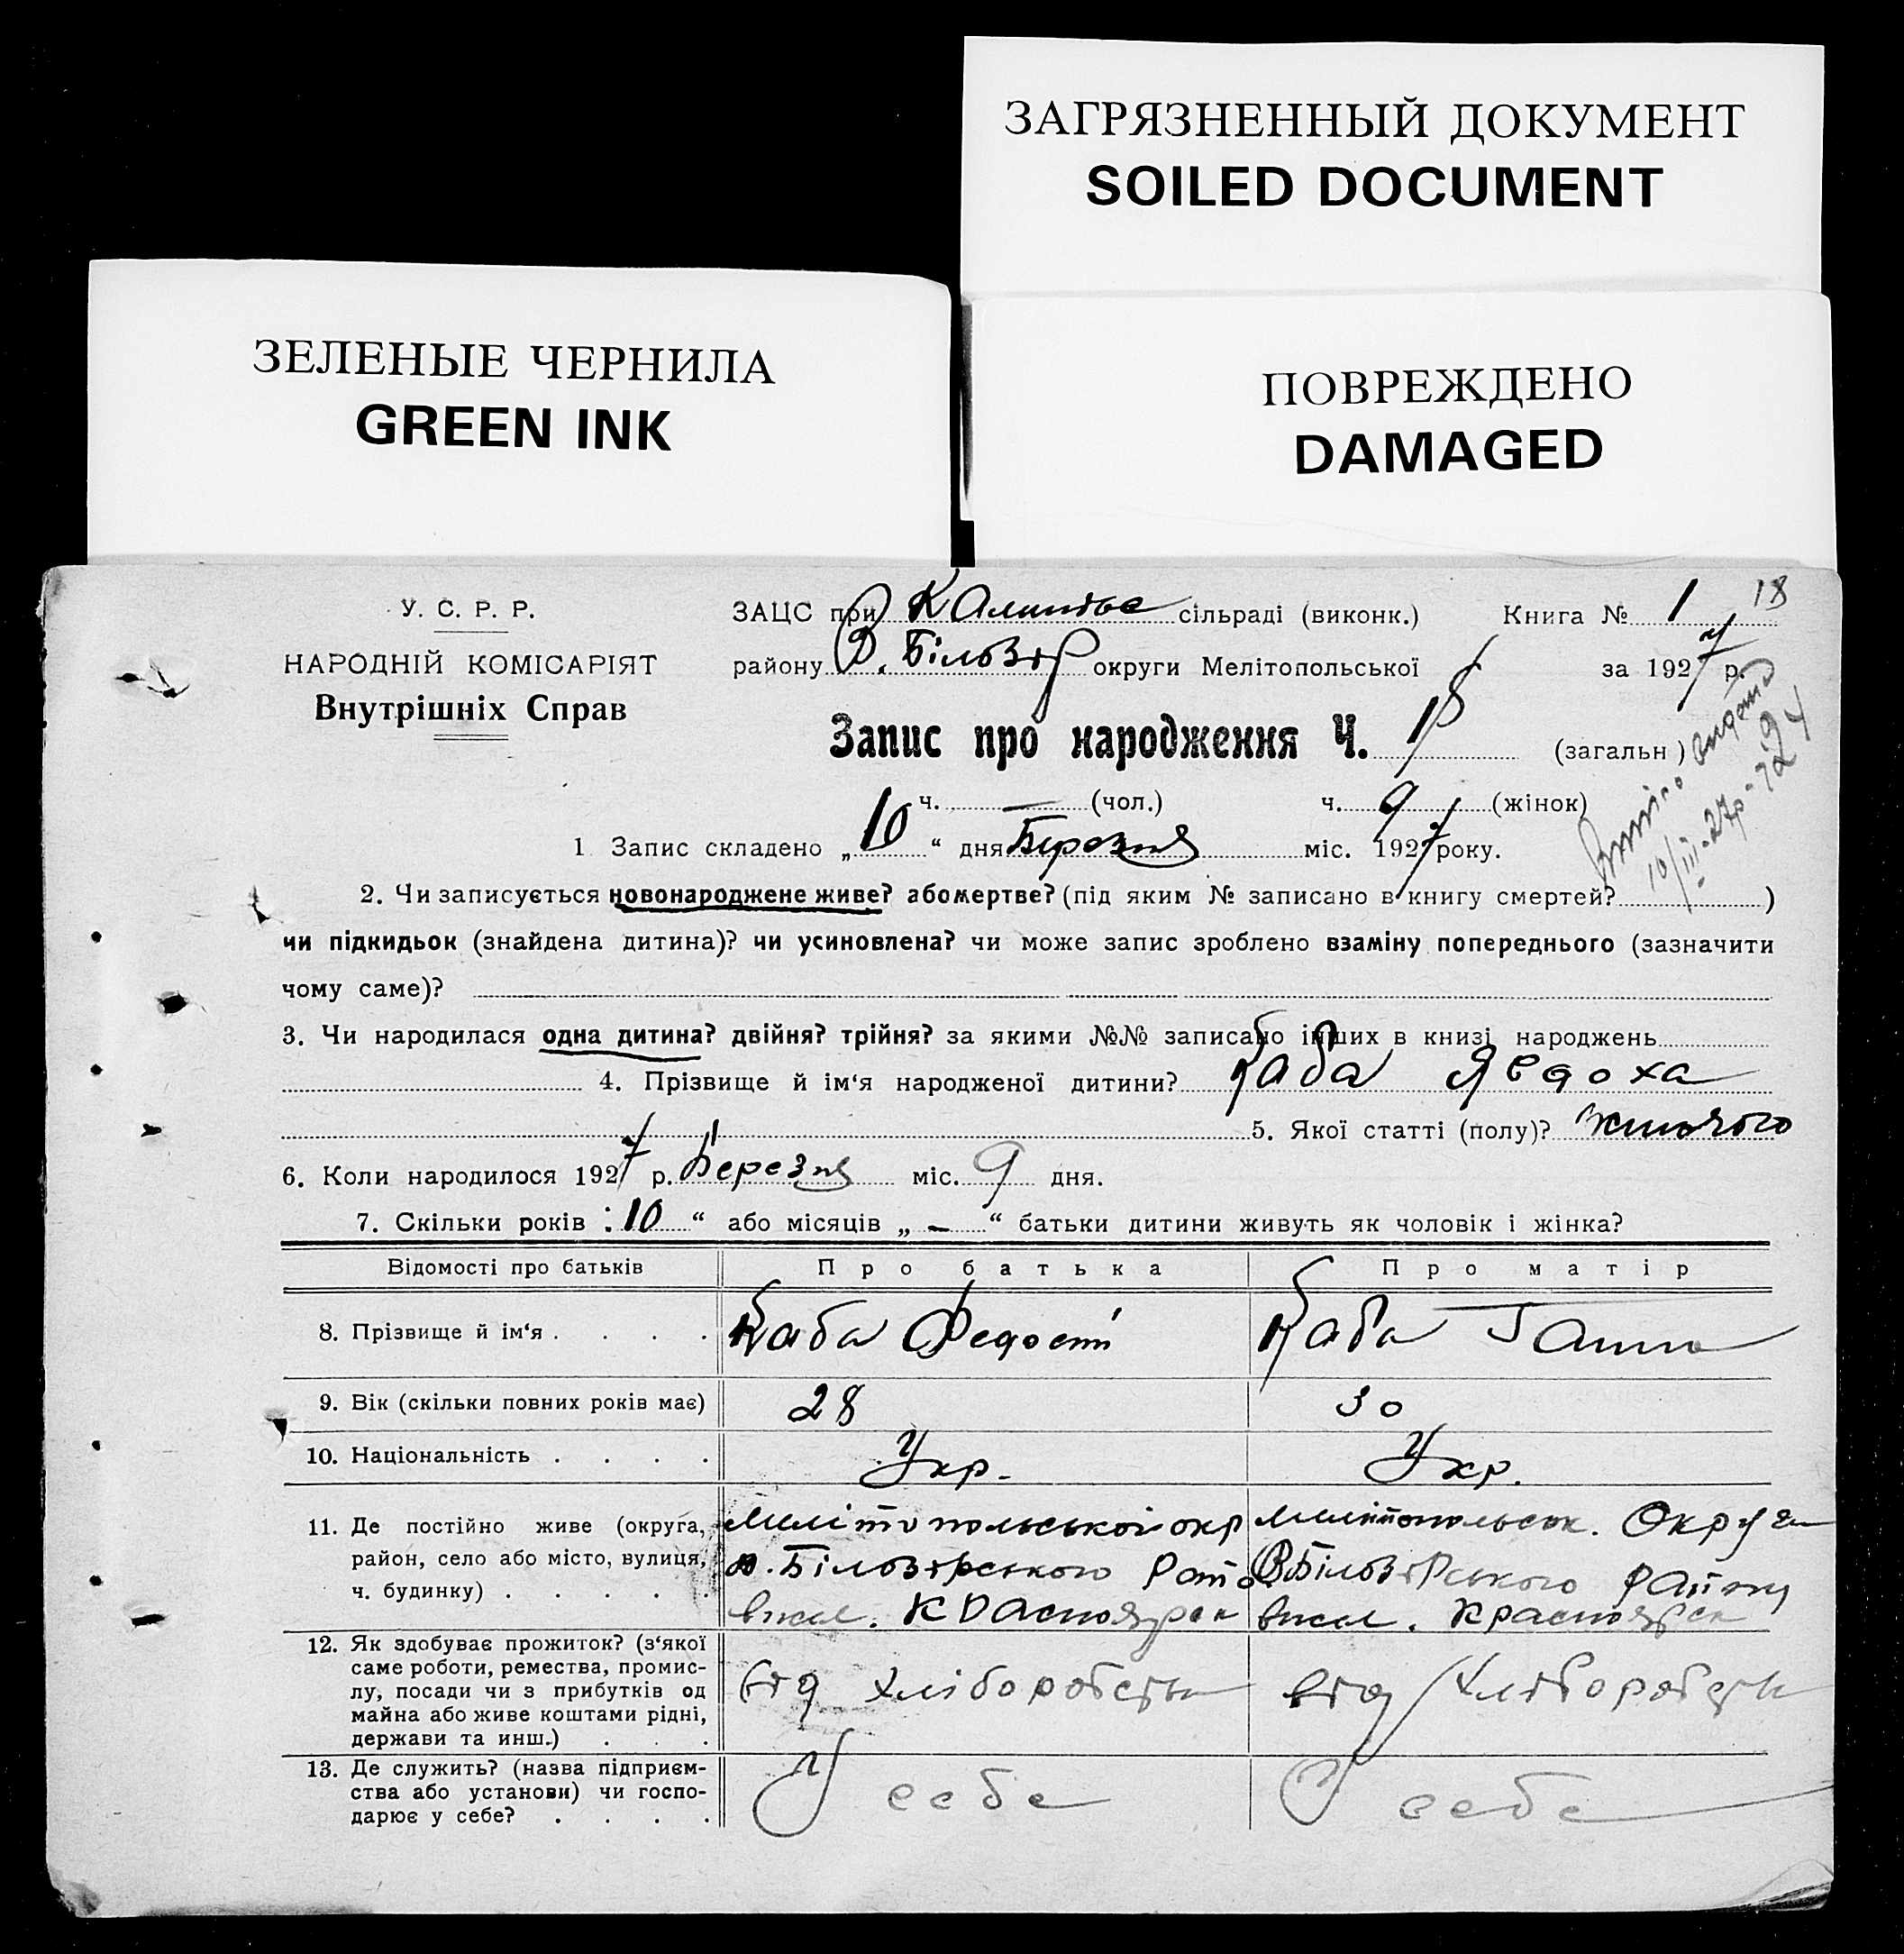 ЗАГРЯЗНЕННЫЙ ДОКУМЕНТ
SOILED DOCUMENT
ЗЕЛЕНЫЕ ЧЕРНИЛА
GREEN INK
ПОВРЕЖДЕНО
DAMAGED
У. С. Р. Р.
НАРОДНІЙ КОМІСАРІЯТ
Внутрішніх Справ
ЗАЦС при сільраді (виконк.) Книга № 1 18
району В. Білозір округи Мелітопольської за 1927 р.
Запис про народження Ч. 18 (загальн)
ч. — (чол.) ч. 9 (жінок)
видано
10/III-27р.
1 Запис складено „10“ дня Березня міс. 1927 року.
2. Чи записується новонароджене живе? або мертве? (під яким № записано в книгу смертей? )
чи підкидьок (знайдена дитина)? чи усиновлена? чи може запис зроблено взаміну попереднього (зазначити
чому саме)?
3. Чи народилася одна дитина? двійня? трійня? за якими №№ записано інших в книзі народжень
4. Прізвище й ім‘я народженої дитини? Каба Явдоха
5. Якої статті (полу)? жиночого
6. Коли народилося 1927 р. Березня міс. 9 дня.
7. Скільки років : 10 “ або місяців „ – “ батьки дитини живуть як чоловік і жінка?
Відомості про батьків Про батька Про матір
8. Прізвище й ім‘я . . . . Каба Федосій Каба Ганна
9. Вік (скільки повних років має) 28 30
10. Національність . . . . Укр. Укр.
11. Де постійно живе (округа,
район, село або місто, вулиця,
ч. будинку) . . . . .
Мелітопольської окр
В. Білозірського Рай
висел. Красноярск
Мелітопольськ. Округи
В. Білозірського райну
висел. Красноярск
12. Як здобуває прожиток? (з‘якої
саме роботи, ремества, промис-
лу, посади чи з прибутків од
майна або живе коштами рідні,
держави та инш.) . . .
від хліборобства
від Хліборобства
13. Де служить? (назва підприєм-
ства або установи) чи госпо-
дарює у себе? . . . .
У себе
У себе